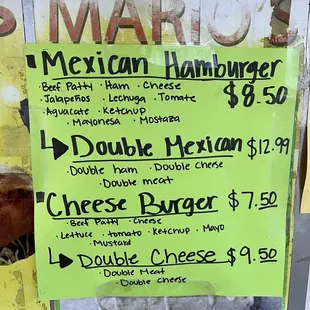 MARIO'S
Mexican Hamburger
· Beef Patty · Ham · Cheese
· Jalapeños · Lechuga · Tomate
· Aguacate · Ketchup
· Mayonesa · Mostaza
$8.50
Double Mexican $12.99
· Double ham · Double cheese
· Double meat
Cheese Burger $7.50
· Beef Patty · Cheese
· Lettuce · tomato · Ketchup · Mayo
· Mustard
Double Cheese $9.50
· Double Meat
· Double cheese